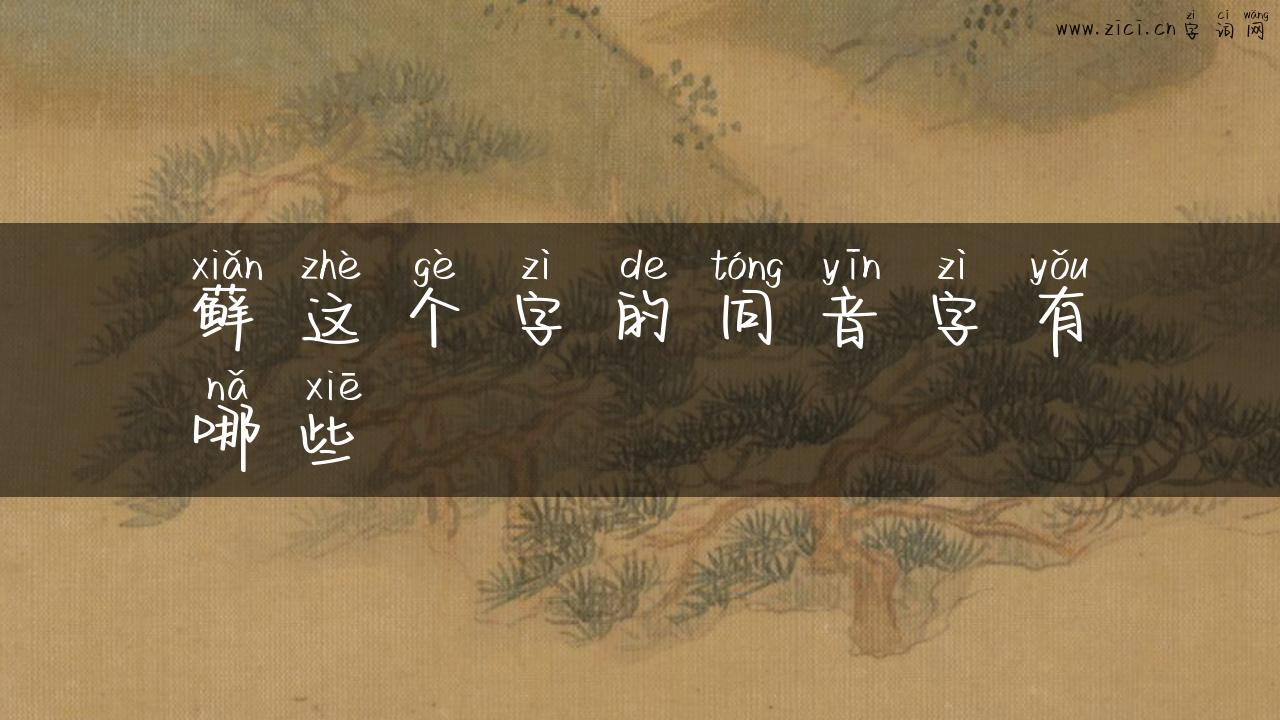 zì cí wǎng
www.zici.cn 字词网
xiǎn zhè gè zì de tóng yīn zì yǒu
藓这个字的同音字有
nǎ xiē
哪些